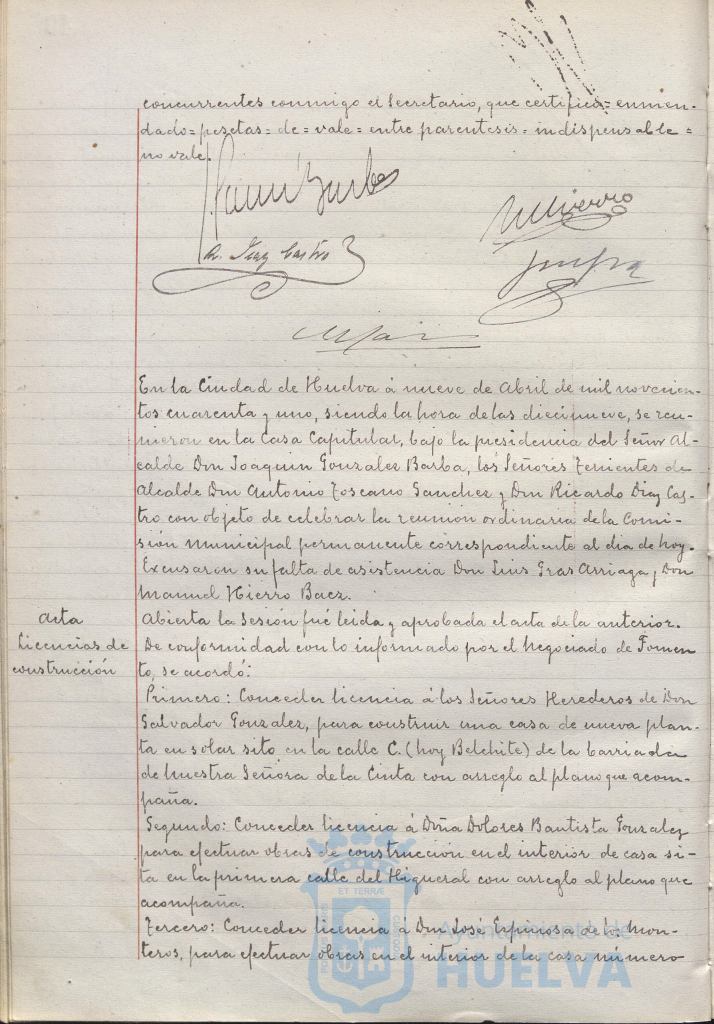 concurrentes conmigo el Secretario, que certifico = enmen-
dado = pesetas = de = vale = entre parentesis = indispensable =
no vale.
R. Diaz Castro
M Hierro
En la Ciudad de Huelva á nueve de Abril de mil novecien-
tos cuarenta y uno, siendo la hora de las diecinueve, se reu-
nieron en la Casa Capitular, bajo la presidencia del Señor Al-
calde Don Joaquin Gonzalez Barba, los Señores Tenientes de
Alcalde Don Antonio Toscano Sanchez y Don Ricardo Diaz Cas-
tro con objeto de celebrar la reunion ordinaria de la Comi-
sión Municipal permanente correspondiente al dia de hoy.
Excusaron su falta de asistencia Don Luis Gras Arriaga y Don
Manuel Hierro Baez.
Acta
Abierta la Sesión fué leida y aprobada el acta de la anterior.
Licencias de
construcción
De conformidad con lo informado por el Negociado de Fomen-
to, se acordó:
Primero: Conceder licencia á los Señores Herederos de Don
Salvador Gonzalez, para construir una casa de nueva plan-
ta en solar sito en la calle C. (hoy Belchite) de la barriada
de Nuestra Señora de la Cinta con arreglo al plano que acom-
paña.
Segundo: Conceder licencia á Doña Dolores Bautista Gonzalez
para efectuar obras de construcción en el interior de casa si-
ta en la primera calle del Higueral con arreglo al plano que
acompaña.
Tercero: Conceder licencia á Don José Espinosa de los Mon-
teros, para efectuar obras en el interior de la casa número
ET TERRÆ
Ayuntamiento de
HUELVA